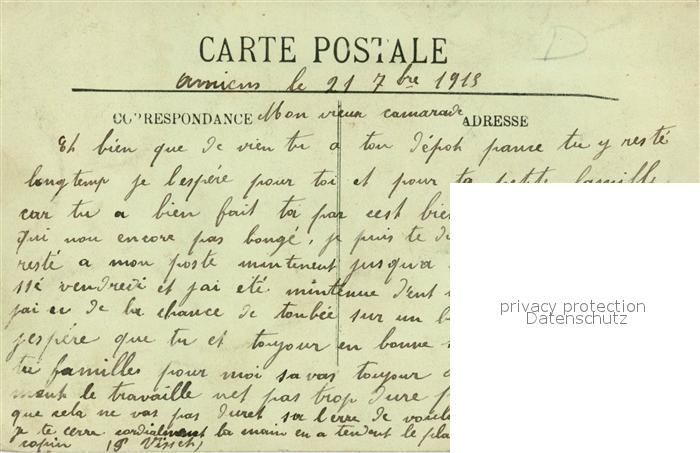 D
CARTE POSTALE
Amiens le 21 7bre 1915
CORRESPONDANCE Mon vieux camarade ADRESSE
Eh bien que de vien tu a ton dépot pance tu y resté
longtemp je l'espére pour toi et pour ta petite famille
car tu a bien fait toi par cest bie
qui non encore pas bougé, je puis te d
resté a mon poste mintenent jusqu'a
ssé vendredi et jai eté mintenue dent
jai eu de la chance de tonbée sur un b
jespére que tu et toujour en bonne
tu familles pour moi sa vas toujour
ment le travaille net pas trop dure p
que cela ne vas pas duret sur l'erre de voul
je te cerre cordialement la main en a tendent le pla
copin
privacy protection
Datenschutz